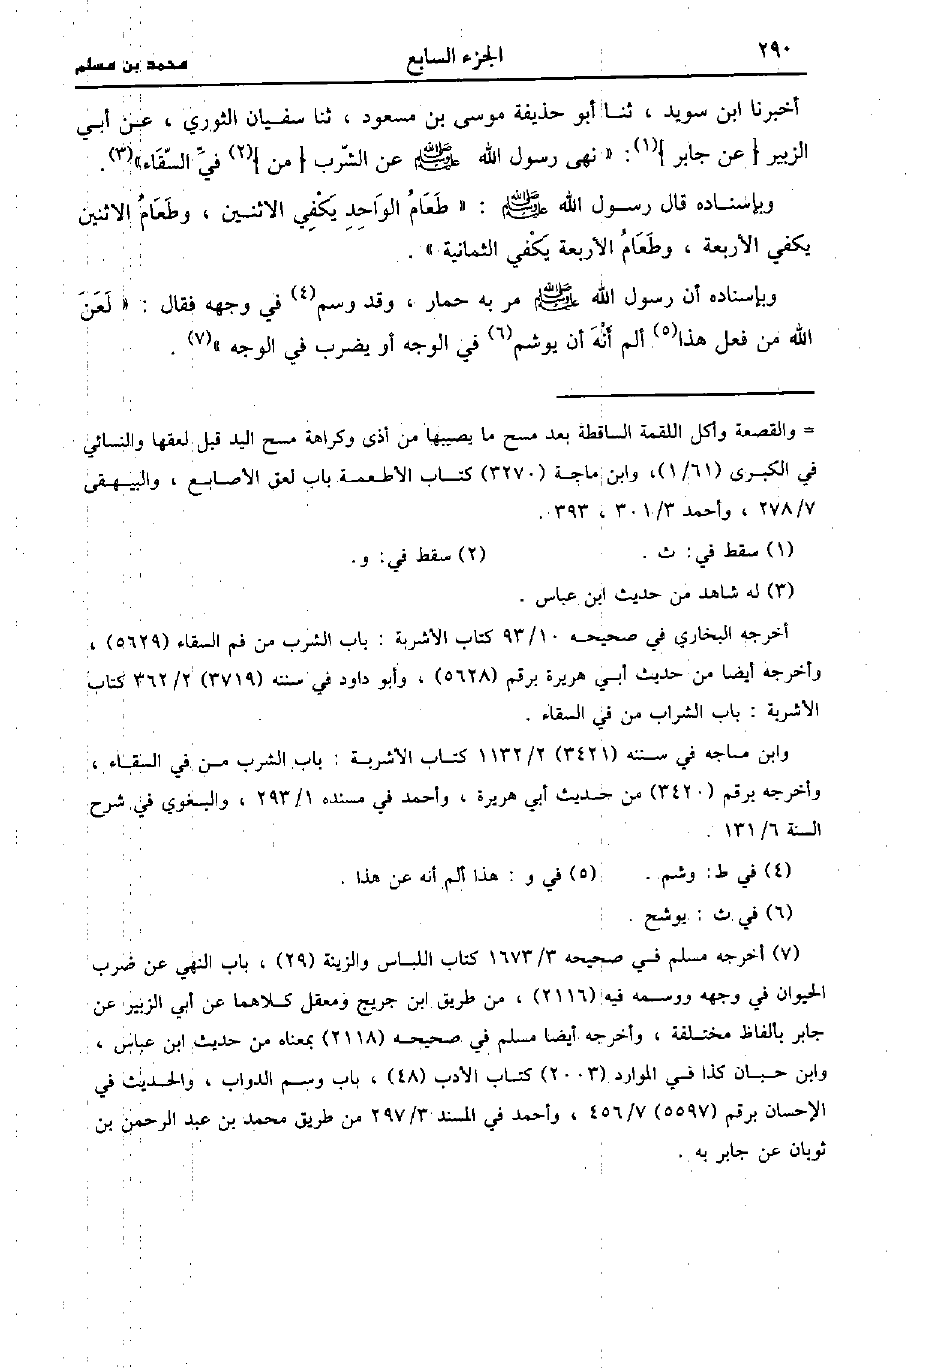 ٢٩٠ الجزء السابع محمد بن مسلم
أخبرنا ابن سويد ، ثنا أبو حذيفة موسى بن مسعود ، ثنا سفيان الثوري ، عن أبي
الزبير { عن جابر }(١): « نهى رسول الله ﷺ عن الشّرب { من }(٢) فيِّ السقَاء»(٣) .
وبإسناده قال رسول الله ﷺ : « طَعَامُ الوَاحِدِ يَكْفِي الاثنين ، وطَعَامُ الاثنين
يكفي الأربعة ، وطَعَامُ الأربعة يَكْفي الثمانية » .
وبإسناده أن رسول الله ﷺ مر به حمار ، وقد وسم(٤) في وجهه فقال : « لَعَنَ
الله من فعل هذا(٥) ألم أَنْهَ أن يوشم(٦) في الوجه أو يضرب في الوجه »(٧) .
= والقصعة وأكل اللقمة الساقطة بعد مسح ما يصيبها من أذى وكراهة مسح اليد قبل لعقها والنسائي
في الكبرى (١/٦١)، وابن ماجة (٣٢٧٠) كتاب الأطعمة باب لعق الأصابع ، والبيهقى
٢٧٨/٧ ، وأحمد ٣٠١/٣ ، ٣٩٣ .
(١) سقط في: ث . (٢) سقط في: و.
(٣) له شاهد من حديث ابن عباس .
أخرجه البخاري في صحيحه ٩٣/١٠ كتاب الأشربة : باب الشرب من فم السقاء (٥٦٢٩) ،
وأخرجه أيضا من حديث أبي هريرة برقم (٥٦٢٨) ، وأبو داود في سننه (٣٧١٩) ٣٦٢/٢ كتاب
الأشربة : باب الشراب من في السقاء .
وابن ماجه في سننه (٣٤٢١) ١١٣٢/٢ كتاب الأشربة : باب الشرب من في السقاء ،
وأخرجه برقم (٣٤٢٠) من حديث أبي هريرة ، وأحمد في مسنده ٢٩٣/١ ، والبغوي في شرح
السنة ١٣١/٦ .
(٤) في ط: وشم . (٥) في و : هذا ألم أنه عن هذا .
(٦) في ث : يوشح .
(٧) أخرجه مسلم في صحيحه ١٦٧٣/٣ كتاب اللباس والزينة (٢٩) ، باب النهي عن ضرب
الحيوان في وجهه ووسمه فيه (٢١١٦) ، من طريق ابن جريج ومعقل كلاهما عن أبي الزبير عن
جابر بألفاظ مختلفة ، وأخرجه أيضا مسلم في صحيحه (٢١١٨) بمعناه من حديث ابن عباس ،
وابن حبان كذا في الموارد (٢٠٠٣) كتاب الأدب (٤٨) ، باب وسم الدواب ، والحديث في
الإحسان برقم (٥٥٩٧) ٤٥٦/٧ ، وأحمد في المسند ٢٩٧/٣ من طريق محمد بن عبد الرحمن بن
ثوبان عن جابر به .